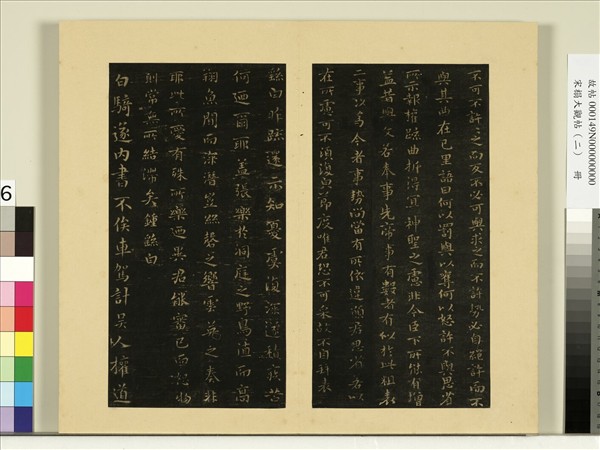 不可不許〻之而反不必可與求之而不許勢必自絕許而不
與其曲在己里語曰何以罰與以奪何以怒許不與思省
所示報權疏曲折得宜神聖之慮非今臣下所能有增
益昔與文若奉事先帝事有數者有似於此粗表
二事以為今者事勢尚當有所依違願君思省若以
在所慮可不須復貌節度唯君恐不可采故不自拜表
繇白昨疏還示知憂虞復深遂積疾苦
何迺爾耶蓋張樂於洞庭之野鳥值而高
翔魚聞而深潛豈絲磬之響雲英之奏非
耶此所愛有殊所樂迺異君能審己而恕物
則常無所結滯矣鍾繇白
白騎遂內書不俟車駕計吳人權道
故帖 000149N000000000
宋搨大觀帖(二) 冊
6